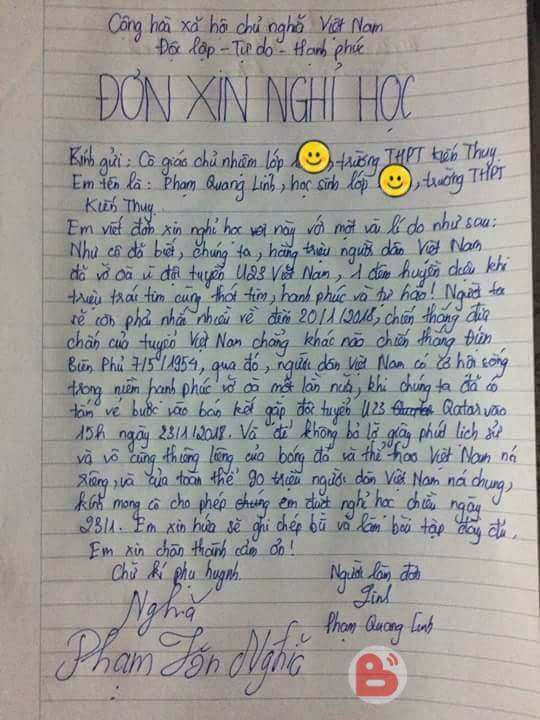 Cộng hoà xã hội chủ nghã Việt Nam
Độc lập - Tự do - Hạnh phúc
ĐƠN XIN NGHỈ HỌC
Kính gửi: Cô giáo chủ nhiệm lớp 1, trường THPT Kiến Thuỵ
Em tên là: Phạm Quang Linh, học sinh lớp, trường THPT
Kiến Thuỵ
Em viết đơn xin nghỉ học này với một vài lí do như sau:
Như cô đã biết, chúng ta, hàng triệu người dân Việt Nam
đã vỡ oà vì đội tuyển U23 Việt Nam, 1 đêm huyền diệu khi
triệu trái tim cùng thót tim, hạnh phúc và tự hào! Người ta
sẽ còn phải nhắc nhiều về đêm 20/1/2018, chiến thắng địa
chấn của tuyển Việt Nam chẳng khác nào chiến thắng Điện
Biên Phủ 7/5/1954, qua đó, người dân Việt Nam có cơ hội sống
trong niềm hạnh phúc vỡ oà một lần nữa, khi chúng ta đã có
tấm vé bước vào bán kết gặp đội tuyển U23 Qatar vào
15h ngày 23/1/2018. Và để không bỏ lỡ giây phút lịch sử
và vô cùng thiêng liêng của bóng đá và thể hao Việt Nam nói
riêng, và của toàn thể 90 triệu người dân Việt Nam nói chung,
kính mong cô cho phép chúng em được nghỉ học chiều ngày
23/1. Em xin hứa sẽ ghi chép bù và làm bài tập đầy đủ.
Em xin chân thành cảm ơn!
Chữ kí phụ huynh.
Người làm đơn
Nghĩa
Linh
Phạm Văn Nghĩa
Phạm Quang Linh
B